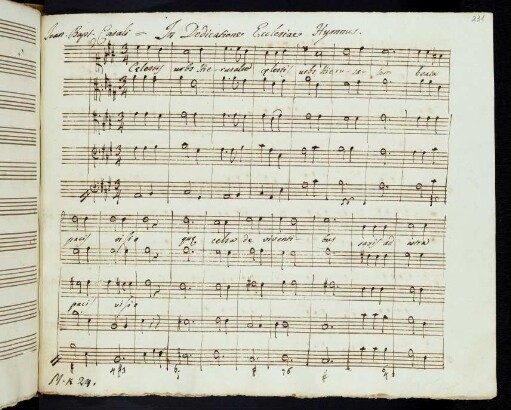 Joan. Bapt. Casali = In Dedicatione Ecclesiae Hymnus.
231
Celestis urbs Hierusalem celestis urbs Hierusalem beata
pacis visio que celsa de viventibus saxis ad astra
paci visio
N. R 24.